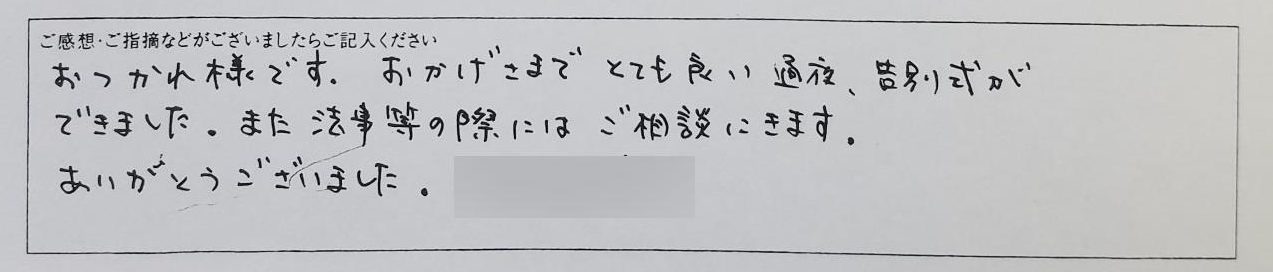 ご感想・ご指摘などがございましたらご記入ください
おつかれ様です。おかげさまでとても良い通夜、告別式が
できました。また法事等の際にはご相談にきます。
ありがとうございました。